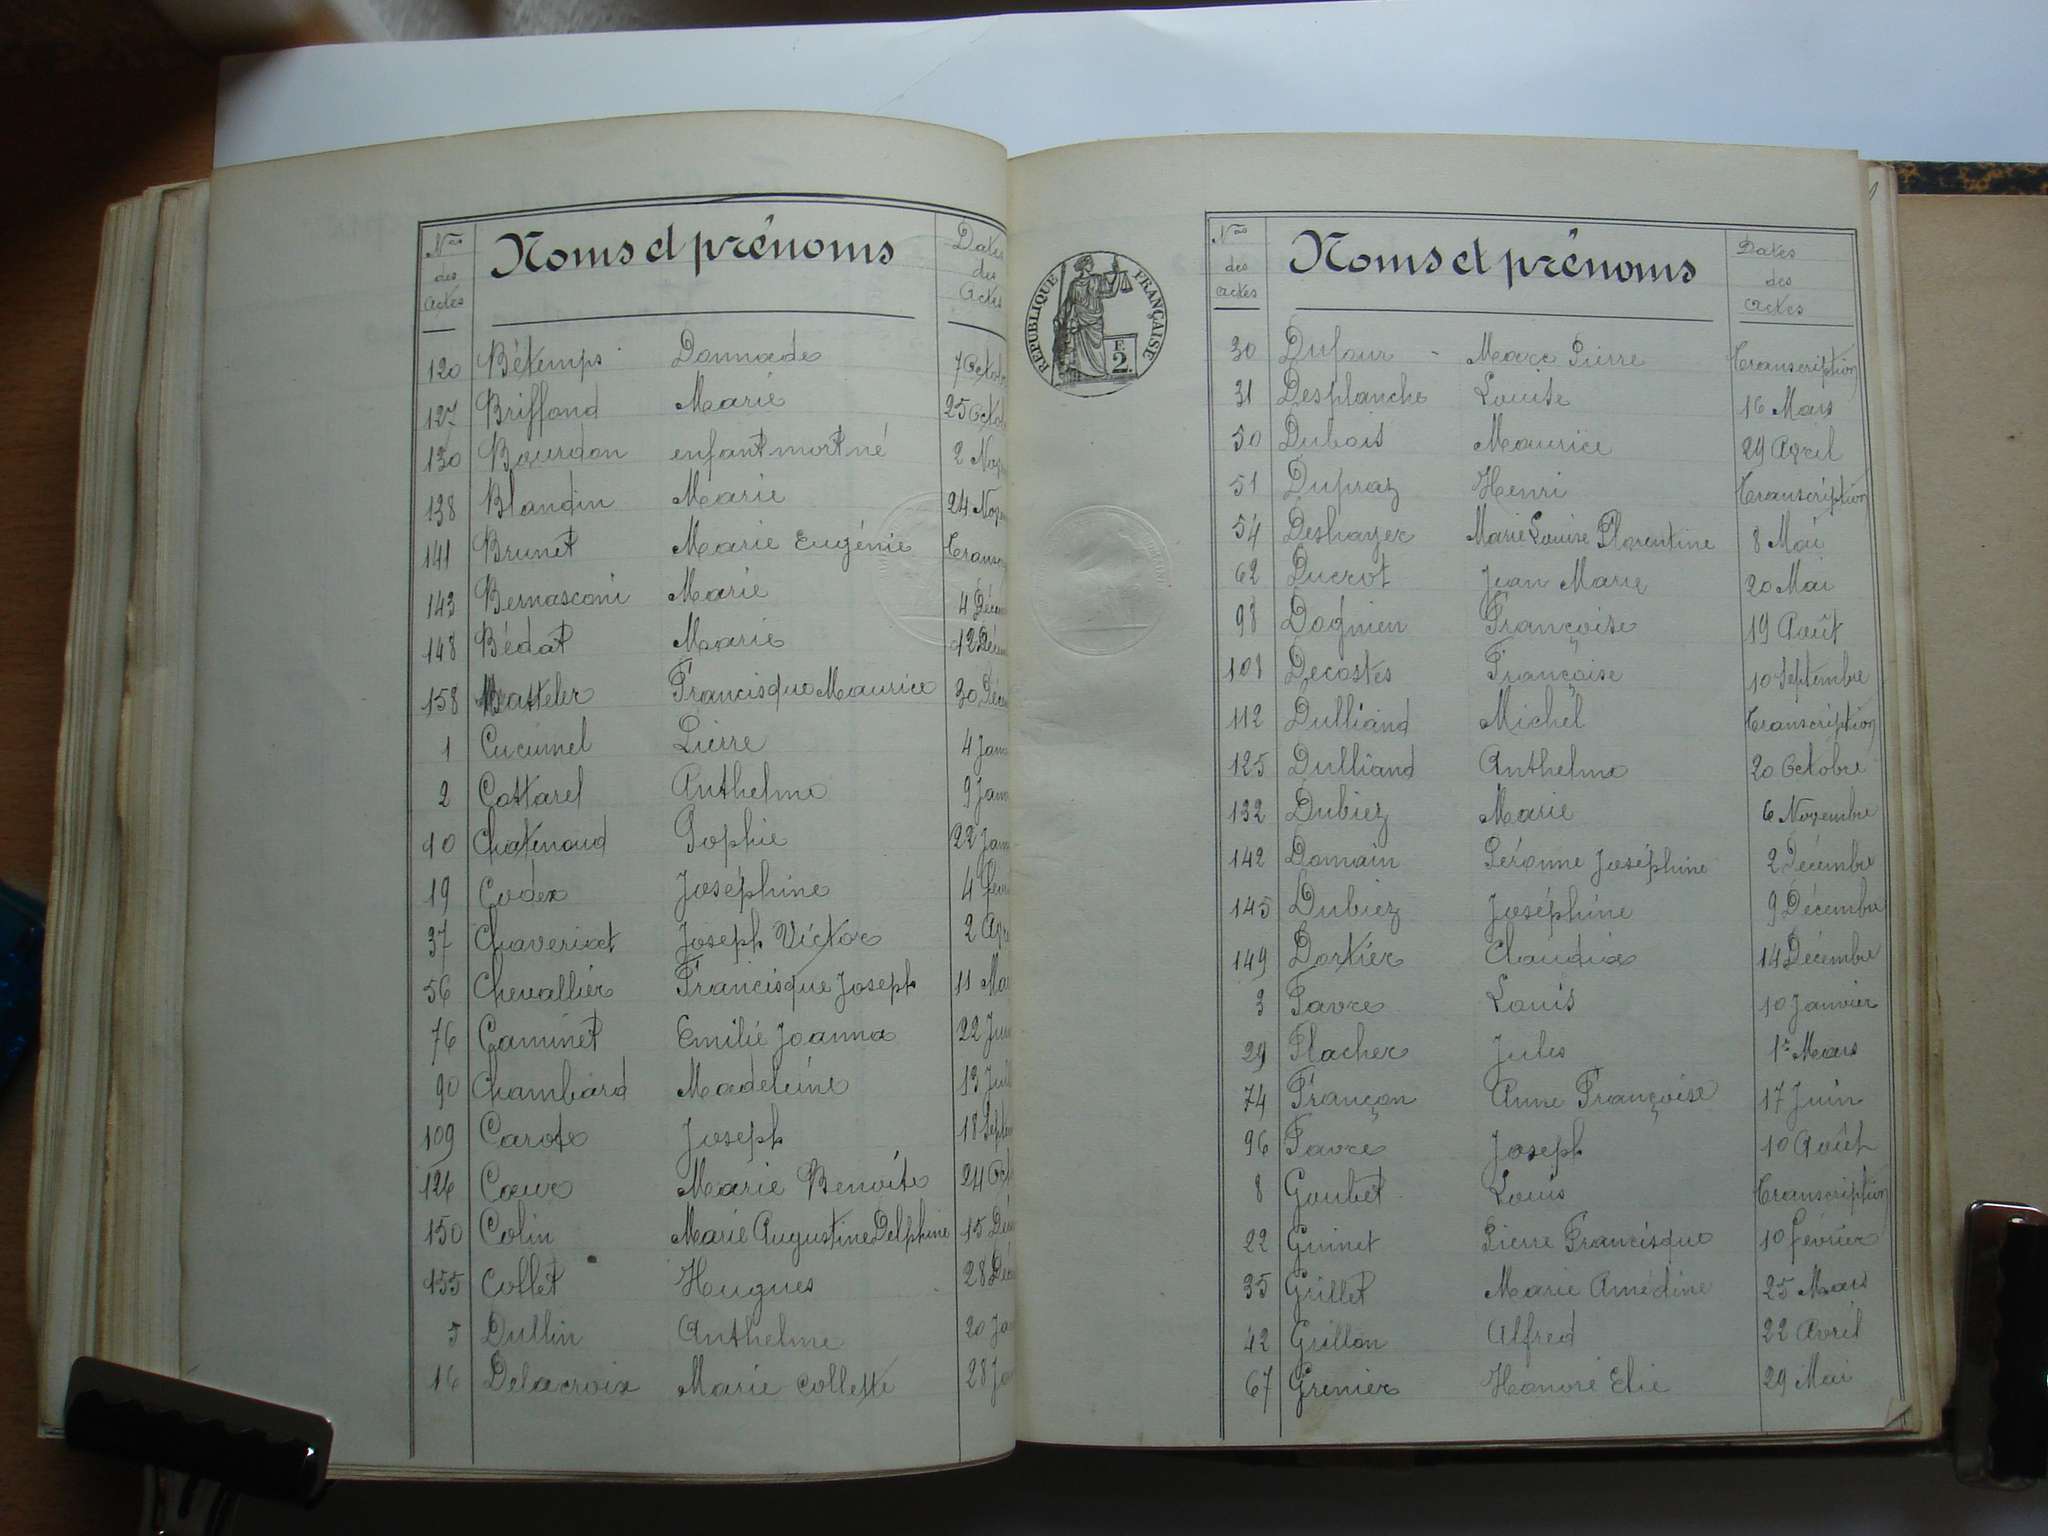 Nos des Actes Noms et prénoms Dates des Actes
120 Bétemps Donnade 7 Octob
127 Briffond Marie 25 Octob
130 Bourdon enfant mort né 2 Nov
138 Blandin Marie 24 Nov
141 Brunet Marie Eugénie Transc
143 Bernasconi Marie 4 Décem
148 Bédat Marie 12 Décem
158 Francisque Maurice 30 Déce
1 Cucumel Pierre 4 Janv
2 Cottarel Anthelme 9 Janv
10 Chatenoud Sophie 22 Janv
19 Codex Joséphine 4 Févr
37 Chaveriat Joseph Victor 2 Avr
56 Chevallier Francisque Joseph 11 Mai
76 Caminet Emilie Joanna 22 Juin
90 Chambard Madeleine 13 Juill
109 Carote Joseph 18 Septem
126 Coeur Marie Benoite 24 Oct
150 Colin Marie Augustine Delphine 15 Déce
155 Collet Hugues 28 Déce
5 Dullin Anthelme 20 Ja
16 Delacroix Marie Collette 28 Ja
RÉPUBLIQUE FRANÇAISE
F. 2.
Nos des actes Noms et prénoms Dates des actes
30 Dufour - Marc Pierre Transcription
31 Desplanche Louise 16 Mars
50 Dubois Maurice 29 Avril
51 Dupraz Henri Transcription
54 Deshayer Marie Louise Florentine 8 Mai
62 Ducrot Jean Marie 20 Mai
98 Dagnien Françoise 19 Août
101 Decostes Françoise 10 Septembre
112 Dulliand Michel Transcription
125 Dulliand Anthelme 20 Octobre
132 Dubiez Marie 6 Novembre
142 Domain Péronne Joséphine 2 Décembre
145 Dubiez Joséphine 9 Décembre
149 Dortier Claudia 14 Décembre
3 Favre Louis 10 Janvier
29 Flacher Jules 1er Mars
74 Françon Anne Françoise 17 Juin
96 Favre Joseph 10 Août
8 Goubet Louis Transcription
22 Guinet Pierre Francisque 10 Février
35 Grillet Marie Amédine 25 Mars
42 Grillon Alfred 22 Avril
67 Grenier Honoré Elie 29 Mai